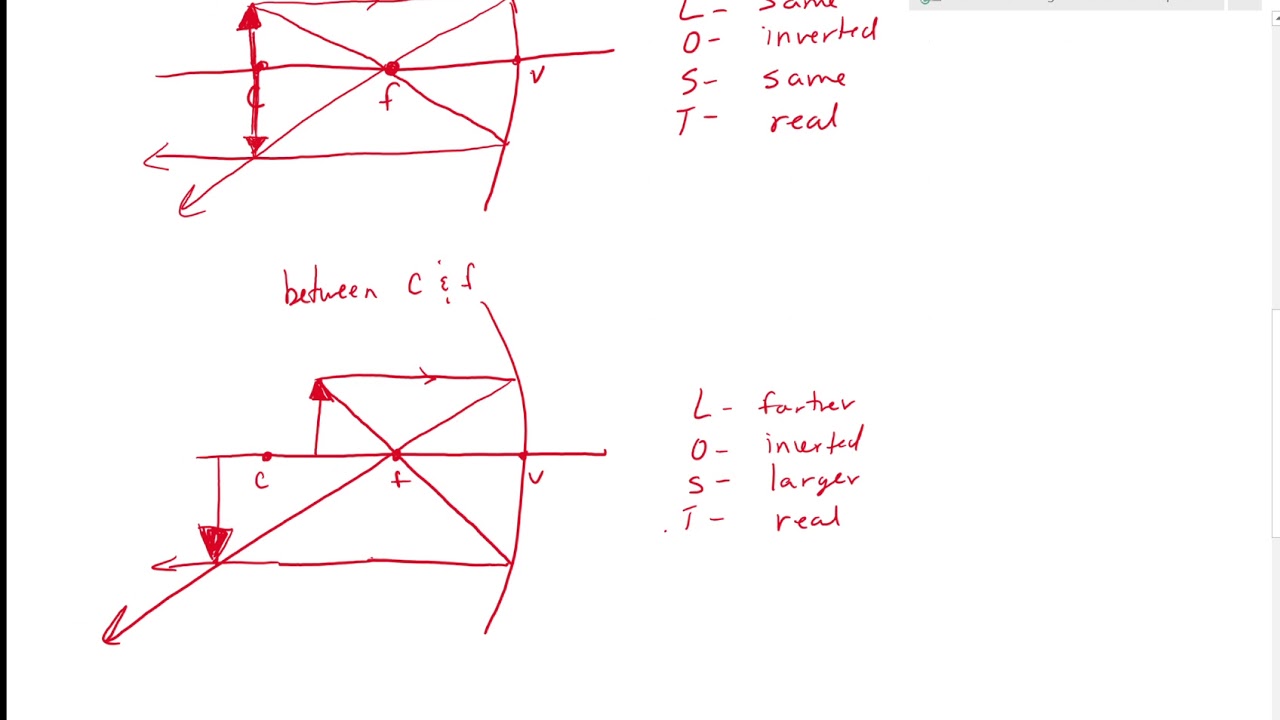 L - same
O - inverted
S - same
T - real
C
f
V
between C & f
L - farther
O - inverted
S - larger
T - real
C
f
V